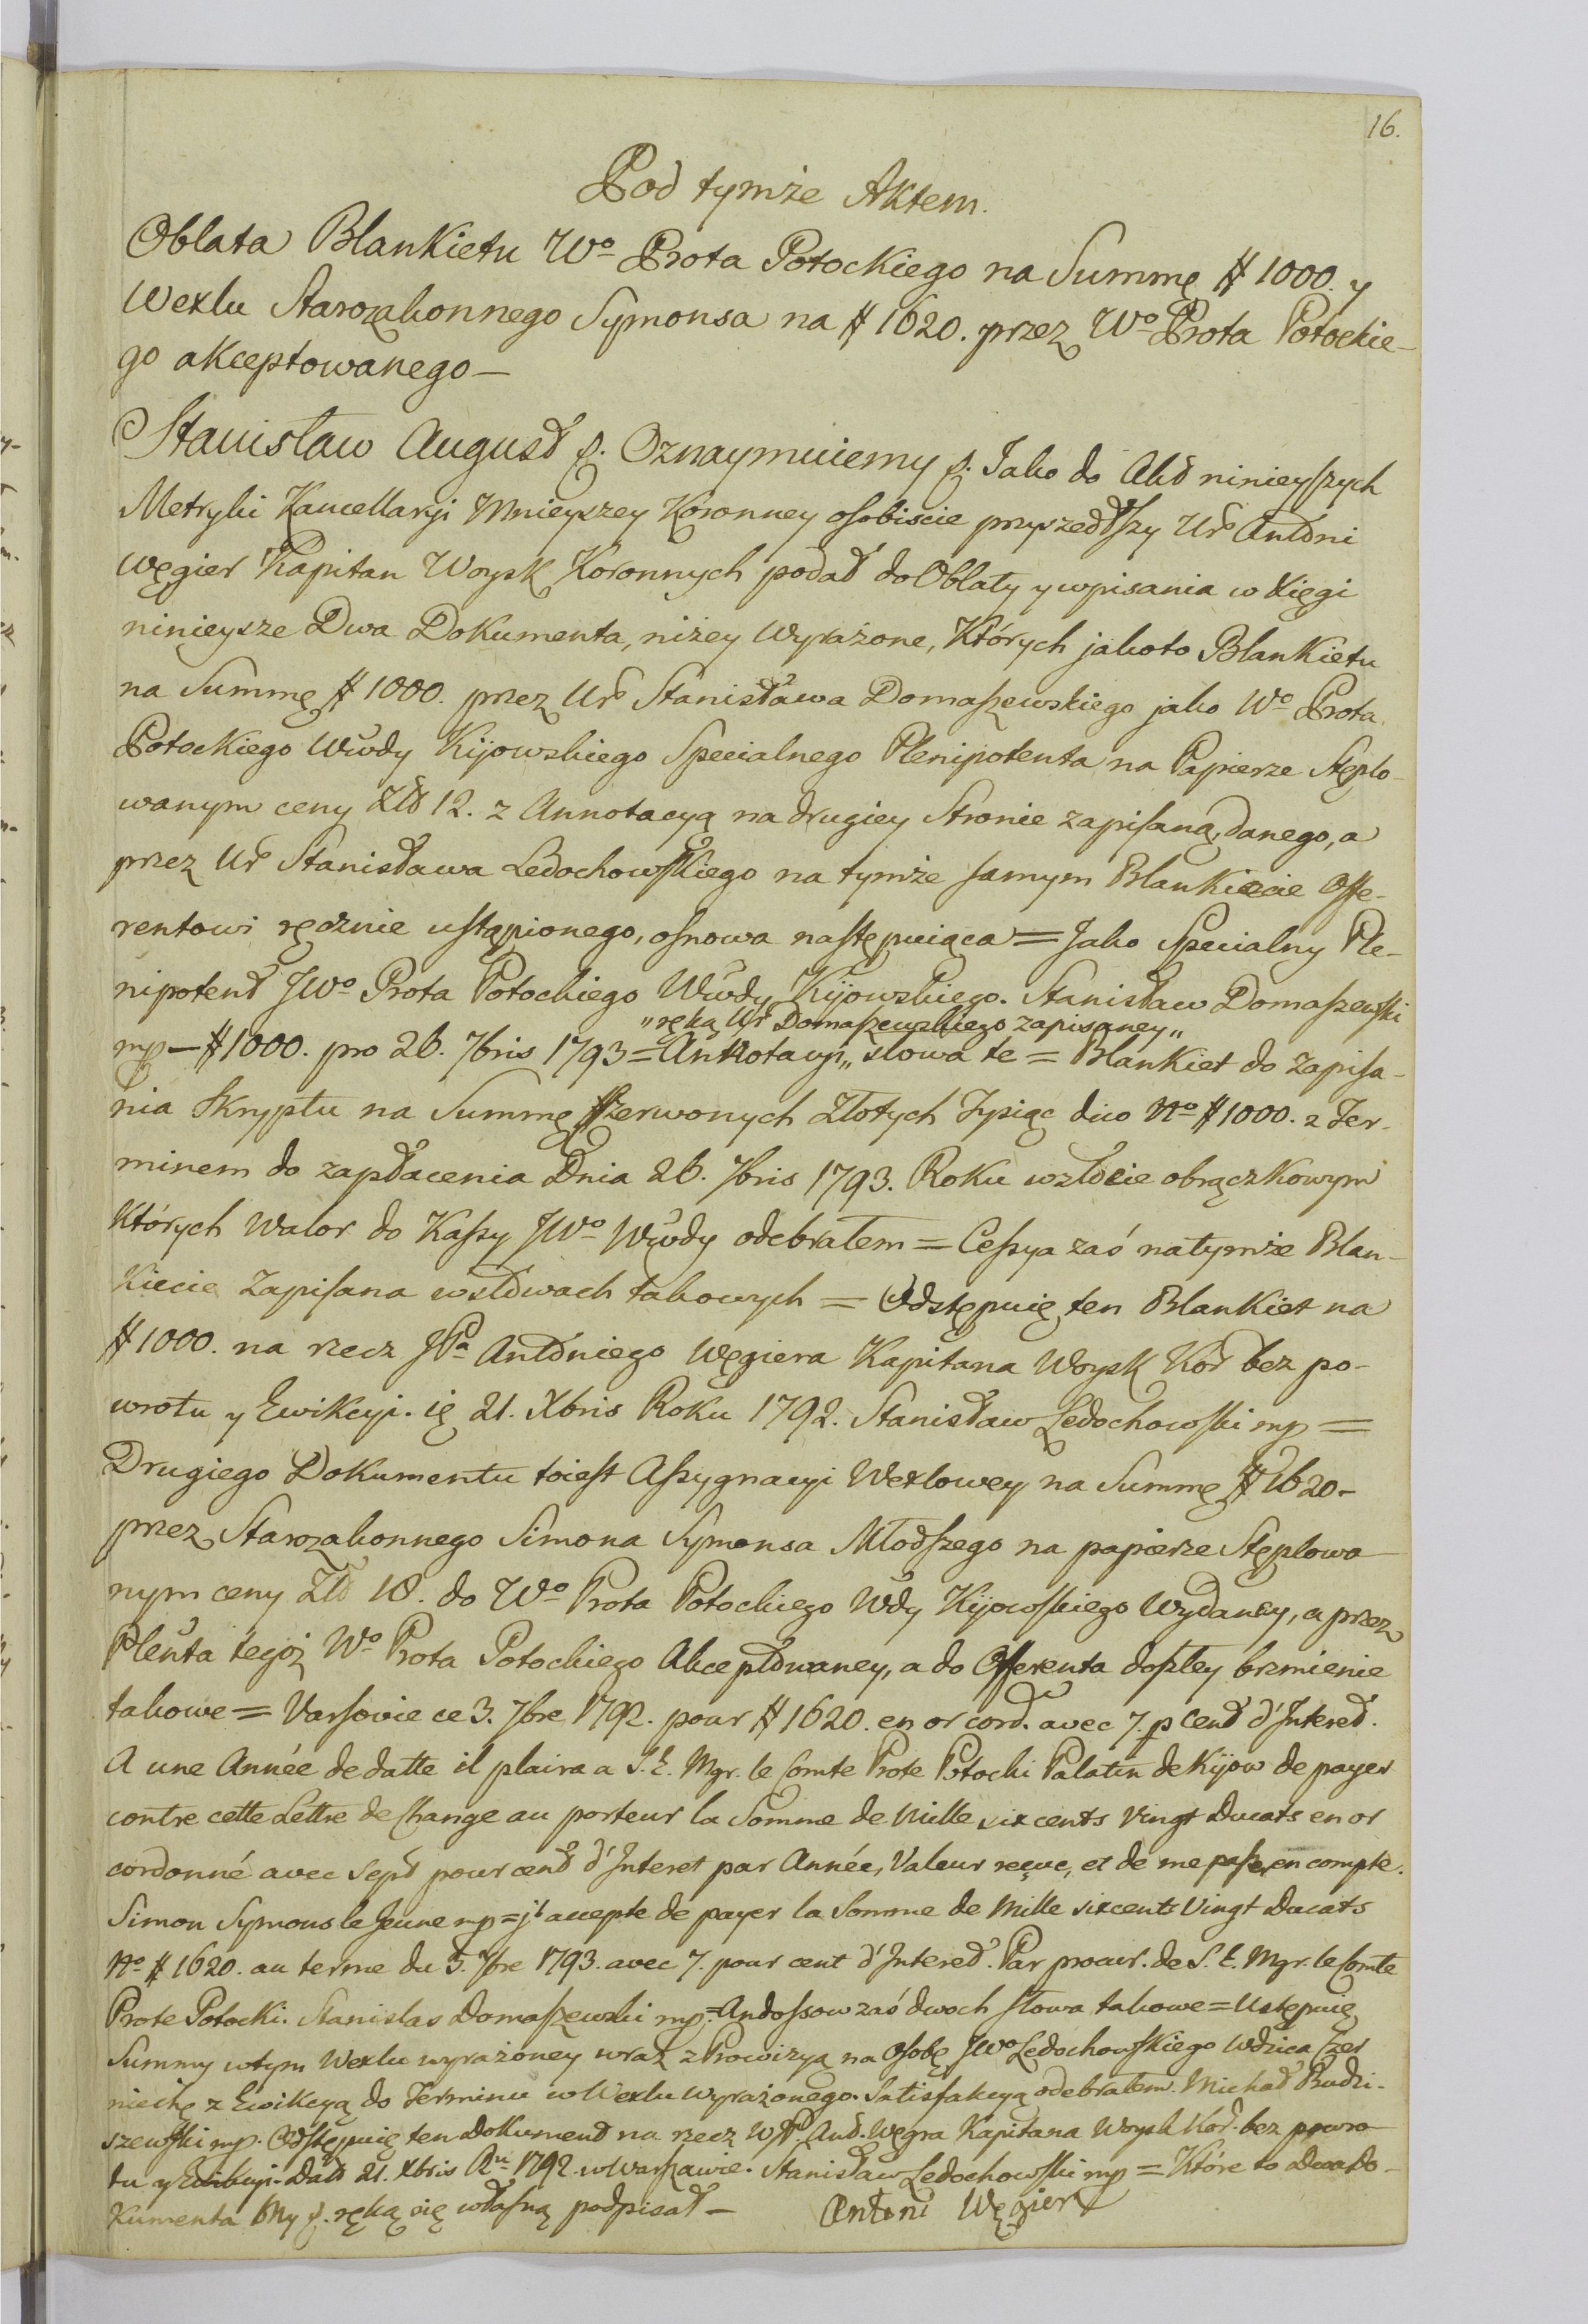 16.
Pod tymże Aktem.
Oblata Blankietu Wº Prota Potockiego na Summę # 1000. y
Wexlu Starozakonnego Symonsa na # 1620. przez Wº Prota Potockie-
go akceptowanego —
Stanisław August p. Oznaymuiemy p. Iako do Akt ninieyszych
Metryki Kancellaryi Mnieyszey Koronney osobiscie przyszedłszy Ur Antoni
Węgier Kapitan Woysk Koronnych podał do Oblaty y wpisania w Xięgi
ninieysze Dwa Dokumenta, niżey Wyrażone, Których jakoto Blankietu
na Summę # 1000. przez Ur Stanisława Domaszewskiego jako Wº Prota
Potockiego Wwdy Kijowskiego Specialnego Plenipotenta na Papierze Stęplo-
wanym ceny Złł 12. z Annotacyą na drugiey Stronie zapisaną, danego, a
przez Ur Stanisława Ledochowskiego na tymże samym Blankiecie Offe-
rentowi ręcznie ustąpionego, osnowa następuiąca = Jako Specialny Ple-
nipotent JWº Prota Potockiego Wwdy Kijowskiego. Stanisław Domaszewski
„ręką Ur Domaszewskiego zapisaney„
mp — # 1000. pro 26. 7bris 1793 = Annotacyi „ słowa te = Blankiet do zapisa-
nia Skryptu na Summę Czerwonych Złotych Tysiąc dico Nº # 1000. z Ter-
minem do zapłacenia Dnia 26. 7bris 1793. Roku wzłocie obrączkowym
Których Walor do Kassy JWº Wwdy odebrałem = Cessya zaś natymże Blan-
kiecie Zapisana wsłowach takowych = Odstępuię ten Blankiet na
# 1000. na rzecz JPa Antoniego Węgiera Kapitana Woysk Kor bez po-
wrotu y Ewikcyi. ię 21. Xbris Roku 1792. Stanisław Ledochowski mp =
Drugiego Dokumentu toiest Assygnacyi Wexlowey na Summę # 1620 -
przez Starozakonnego Simona Symonsa Młodszego na papierze Stęplowa
nym ceny Złł 18. do Wº Prota Potockiego Wdy Kijowskiego Wydaney, a przez
Plenta tegoż Wº Prota Potockiego Akceptowaney, a do Offerenta doszłey brzmienie
takowe = Varsovie ce 3. 7bre 1792. pour # 1620. en or cord. avec 7. p Cent d'Interet.
A une Année de datte il plaira a S. E. Mgr. le Comte Prote Potocki Palatin de Kijow de payer
contre cette Lettre de Change au porteur la Somme de Mille six cents Vingt Ducats en or
cordonné avec Sept pour cent d'Interet par Année, Valeur reçue, et de me passer en compte.
Simon Symons le Jeune mp = j' accepte de payer la Somme de Mille sixcents Vingt Ducats
Nº # 1620. au terme du 3. 7bre 1793. avec 7. pour cent d'Interet. Par procur. de S. E. Mgr. le Comte
Prote Potocki. Stanislas Domaszewski mp. = Andossow zaś dwoch słowa takowe = Ustępuię
Summy wtym Wexlu wyrażoney wraz z Prowizyą na Osobę JWº Ledochowskiego Wdzica Czer
niechę z Ewikcyą do Terminu w Wexlu wyrażonego. Satisfakcyą odebrałem. Michał Budzi-
szewski mp. Odstępuię ten Dokument na rzecz WJP. Ant. Węgra Kapitana Woysk Kor. bez powro
tu y Ewikcyi. Datt 21. Xbris An 1792. w Warszawie. Stanisław Ledochowski mp = Które to Dwa Do-
kumenta My p. ręką się własną podpisał —
Antoni Węgier